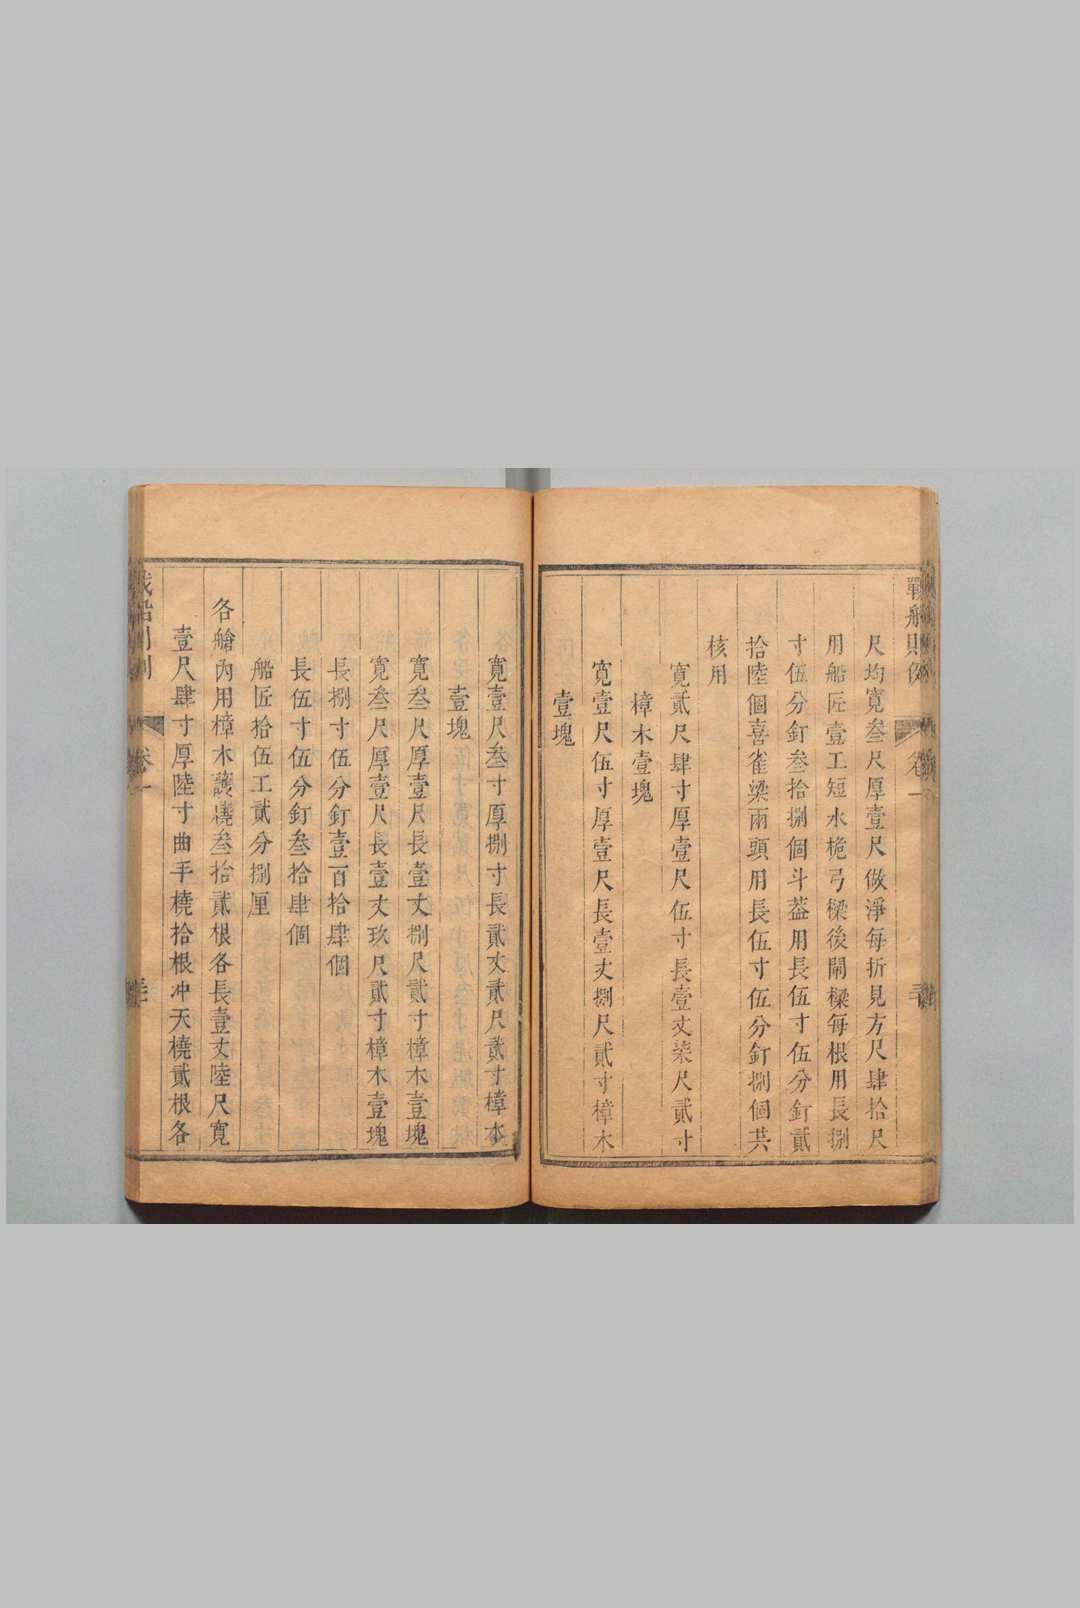 尺均寬叁尺厚壹尺做淨每折見方尺肆拾尺
用船匠壹工短水桅弓樑後閘樑每根用長捌
寸伍分釘叁拾捌個斗蓋用長伍寸伍分釘貳
拾陸個喜雀梁兩頭用長伍寸伍分釘捌個共
核用
寬貳尺肆寸厚壹尺伍寸長壹丈柒尺貳寸
樟木壹塊
寬壹尺伍寸厚壹尺長壹丈捌尺貳寸樟木
壹塊
寬壹尺叁寸厚捌寸長貳丈貳尺貳寸樟木
壹塊
寬叁尺厚壹尺長壹丈捌尺貳寸樟木壹塊
寬叁尺厚壹尺長壹丈玖尺貳寸樟木壹塊
長捌寸伍分釘壹百拾肆個
長伍寸伍分釘叁拾肆個
船匠拾伍工貳分捌厘
各艙內用樟木護橈叁拾貳根各長壹丈陸尺寬
壹尺肆寸厚陸寸曲手橈拾根冲天橈貳根各
卷一